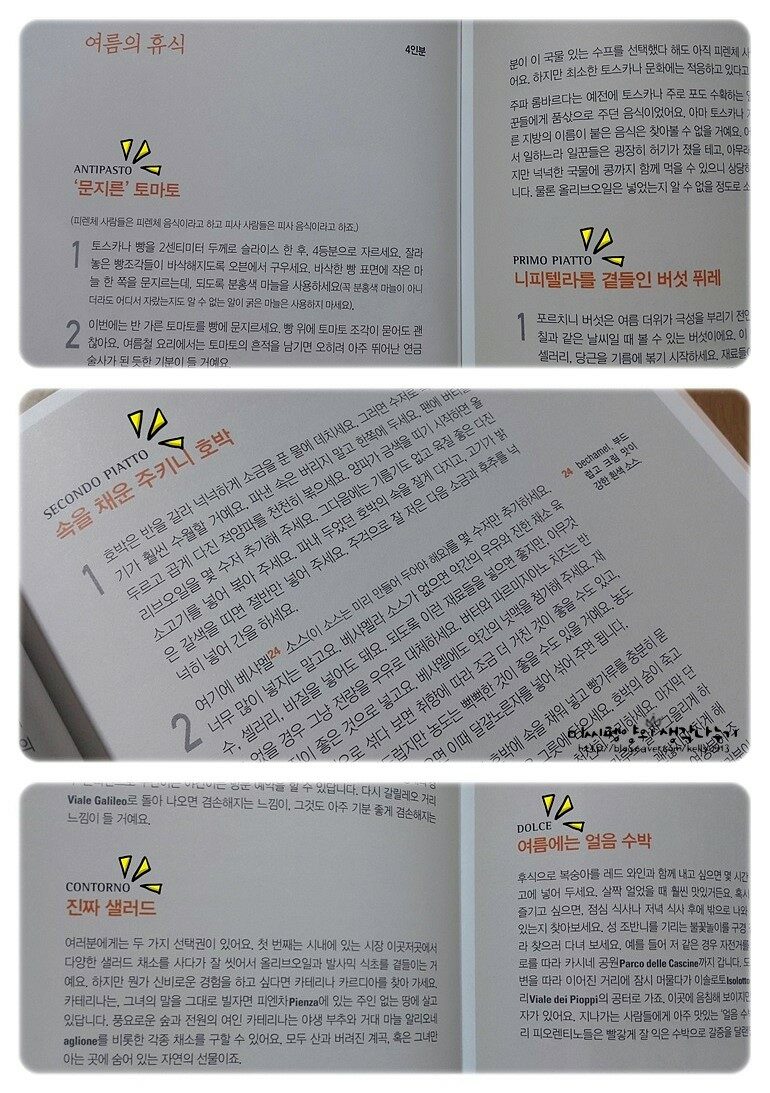 여름의 휴식
4인분
ANTIPASTO
'문지른' 토마토
(피렌체 사람들은 피렌체 음식이라고 하고 피사 사람들은 피사 음식이라고 하죠.)
1 토스카나 빵을 2센티미터 두께로 슬라이스 한 후, 4등분으로 자르세요. 잘라
놓은 빵조각들이 바삭해지도록 오븐에서 구우세요. 바삭한 빵 표면에 작은 마
늘 한 쪽을 문지르는데, 되도록 분홍색 마늘을 사용하세요(꼭 분홍색 마늘이 아니
더라도 어디서 자랐는지도 알 수 없는 알이 굵은 마늘은 사용하지 마세요).
2 이번에는 반 가른 토마토를 빵에 문지르세요. 빵 위에 토마토 조각이 묻어도 괜
찮아요. 여름철 요리에서는 토마토의 흔적을 남기면 오히려 아주 뛰어난 연금
술사가 된 듯한 기분이 들 거예요.
분이 이 국물 있는 수프를 선택했다 해도 아직 피렌체 사
어요. 하지만 최소한 토스카나 문화에는 적응하고 있다고
주파 롬바르다는 예전에 토스카나 주로 포도 수확하는
꾼들에게 품삯으로 주던 음식이었어요. 아마 토스카나
른 지방의 이름이 붙은 음식은 찾아볼 수 없을 거예요.
서 일하느라 일꾼들은 굉장히 허기가 졌을 테고, 아무래
지만 넉넉한 국물에 콩까지 함께 먹을 수 있으니 상당히
니다. 물론 올리브오일은 넣었는지 알 수 없을 정도로
PRIMO PIATTO
니피텔라를 곁들인 버섯 퓌레
1 포르치니 버섯은 여름 더위가 극성을 부리기 전인
칠과 같은 날씨일 때 볼 수 있는 버섯이에요. 이
셀러리, 당근을 기름에 볶기 시작하세요. 재료들이
SECONDO PIATTO
속을 채운 주키니 호박
1 호박은 반을 갈라 넉넉하게 소금을 푼 물에 데치세요. 그러면 수저로
기가 훨씬 수월할 거예요. 파낸 속은 버리지 말고 한쪽에 두세요. 팬에 버터를
두르고 곱게 다진 적양파를 천천히 볶으세요. 양파가 금색을 띠기 시작하면 올
리브오일을 몇 수저 추가해 주세요. 그다음에는 기름기도 없고 육질 좋은 다진
소고기를 넣어 볶아 주세요. 파내 두었던 호박의 속을 잘게 다지고, 고기가 밝
은 갈색을 띠면 절반만 넣어 주세요. 주걱으로 잘 저은 다음 소금과 후추를 넉
넉히 넣어 간을 하세요.
24 bechamel, 부드
럽고 크림 맛이
강한 흰색 소스.
2 여기에 베샤멜24 소스(이 소스는 미리 만들어 두어야 해요)를 몇 수저만 추가하세요.
너무 많이 넣지는 말고요. 베샤멜리 소스가 없으면 약간의 우유와 진한 채소 육
수, 셀러리, 바질을 넣어도 돼요. 되도록 이런 재료들을 넣으면 좋지만 아무것
없을 경우 그냥 전량을 우유로 대체하세요. 버터와 파르미지아노 치즈는 반
질이 좋은 것으로 넣고요. 베샤멜에도 약간의 넛맥을 첨가해 주세요. 재
으로 섞다 보면 취향에 따라 조금 더 거친 것이 좋을 수도 있고
드럽지만 농도는 뻑뻑한 것이 좋을 수도 있을 거예요. 농도
으면 이때 달걀노른자를 넣어 섞어 주면 됩니다.
호박에 속을 채워 넣고 빵가루를 충분히 묻
Viale Galileo로 돌아 나오면 겸손해지는 느낌이, 그것도 아주 기분 좋게 겸손해지는
느낌이 들 거예요.
CONTORNO
진짜 샐러드
여러분에게는 두 가지 선택권이 있어요. 첫 번째는 시내에 있는 시장 이곳저곳에서
다양한 샐러드 채소를 사다가 잘 씻어서 올리브오일과 발사믹 식초를 곁들이는 거
예요. 하지만 뭔가 신비로운 경험을 하고 싶다면 카테리나 카르디아를 찾아 가세요.
카테리나는, 그녀의 말을 그대로 빌자면 피엔차Pienza에 있는 주인 없는 땅에 살고
있답니다. 풍요로운 숲과 전원의 여인 카테리나는 야생 부추와 거대 마늘 알리오네
aglione를 비롯한 각종 채소를 구할 수 있어요. 모두 산과 버려진 계곡, 혹은 그녀만
아는 곳에 숨어 있는 자연의 선물이죠.
DOLCE
여름에는 얼음 수박
후식으로 복숭아를 레드 와인과 함께 내고 싶으면 몇 시간
고에 넣어 두세요. 살짝 얼었을 때 훨씬 맛있거든요. 혹시
즐기고 싶으면, 점심 식사나 저녁 식사 후에 밖으로 나와
있는지 찾아보세요. 성 조반니를 기리는 불꽃놀이를 구경
라 찾으러 다녀 보세요. 예를 들어 저 같은 경우 자전거를
로를 따라 카시네 공원Parco delle Cascine까지 갑니다.
변을 따라 이어진 거리에 잠시 머물다가 이솔로토Isolotto
리Viale dei Pioppi의 공터로 가죠. 이곳에 음침해 보이지만
자가 있어요. 지나가는 사람들에게 아주 맛있는 '얼음 수박
리 피오렌티노들은 빨갛게 잘 익은 수박으로 갈증을 달랜